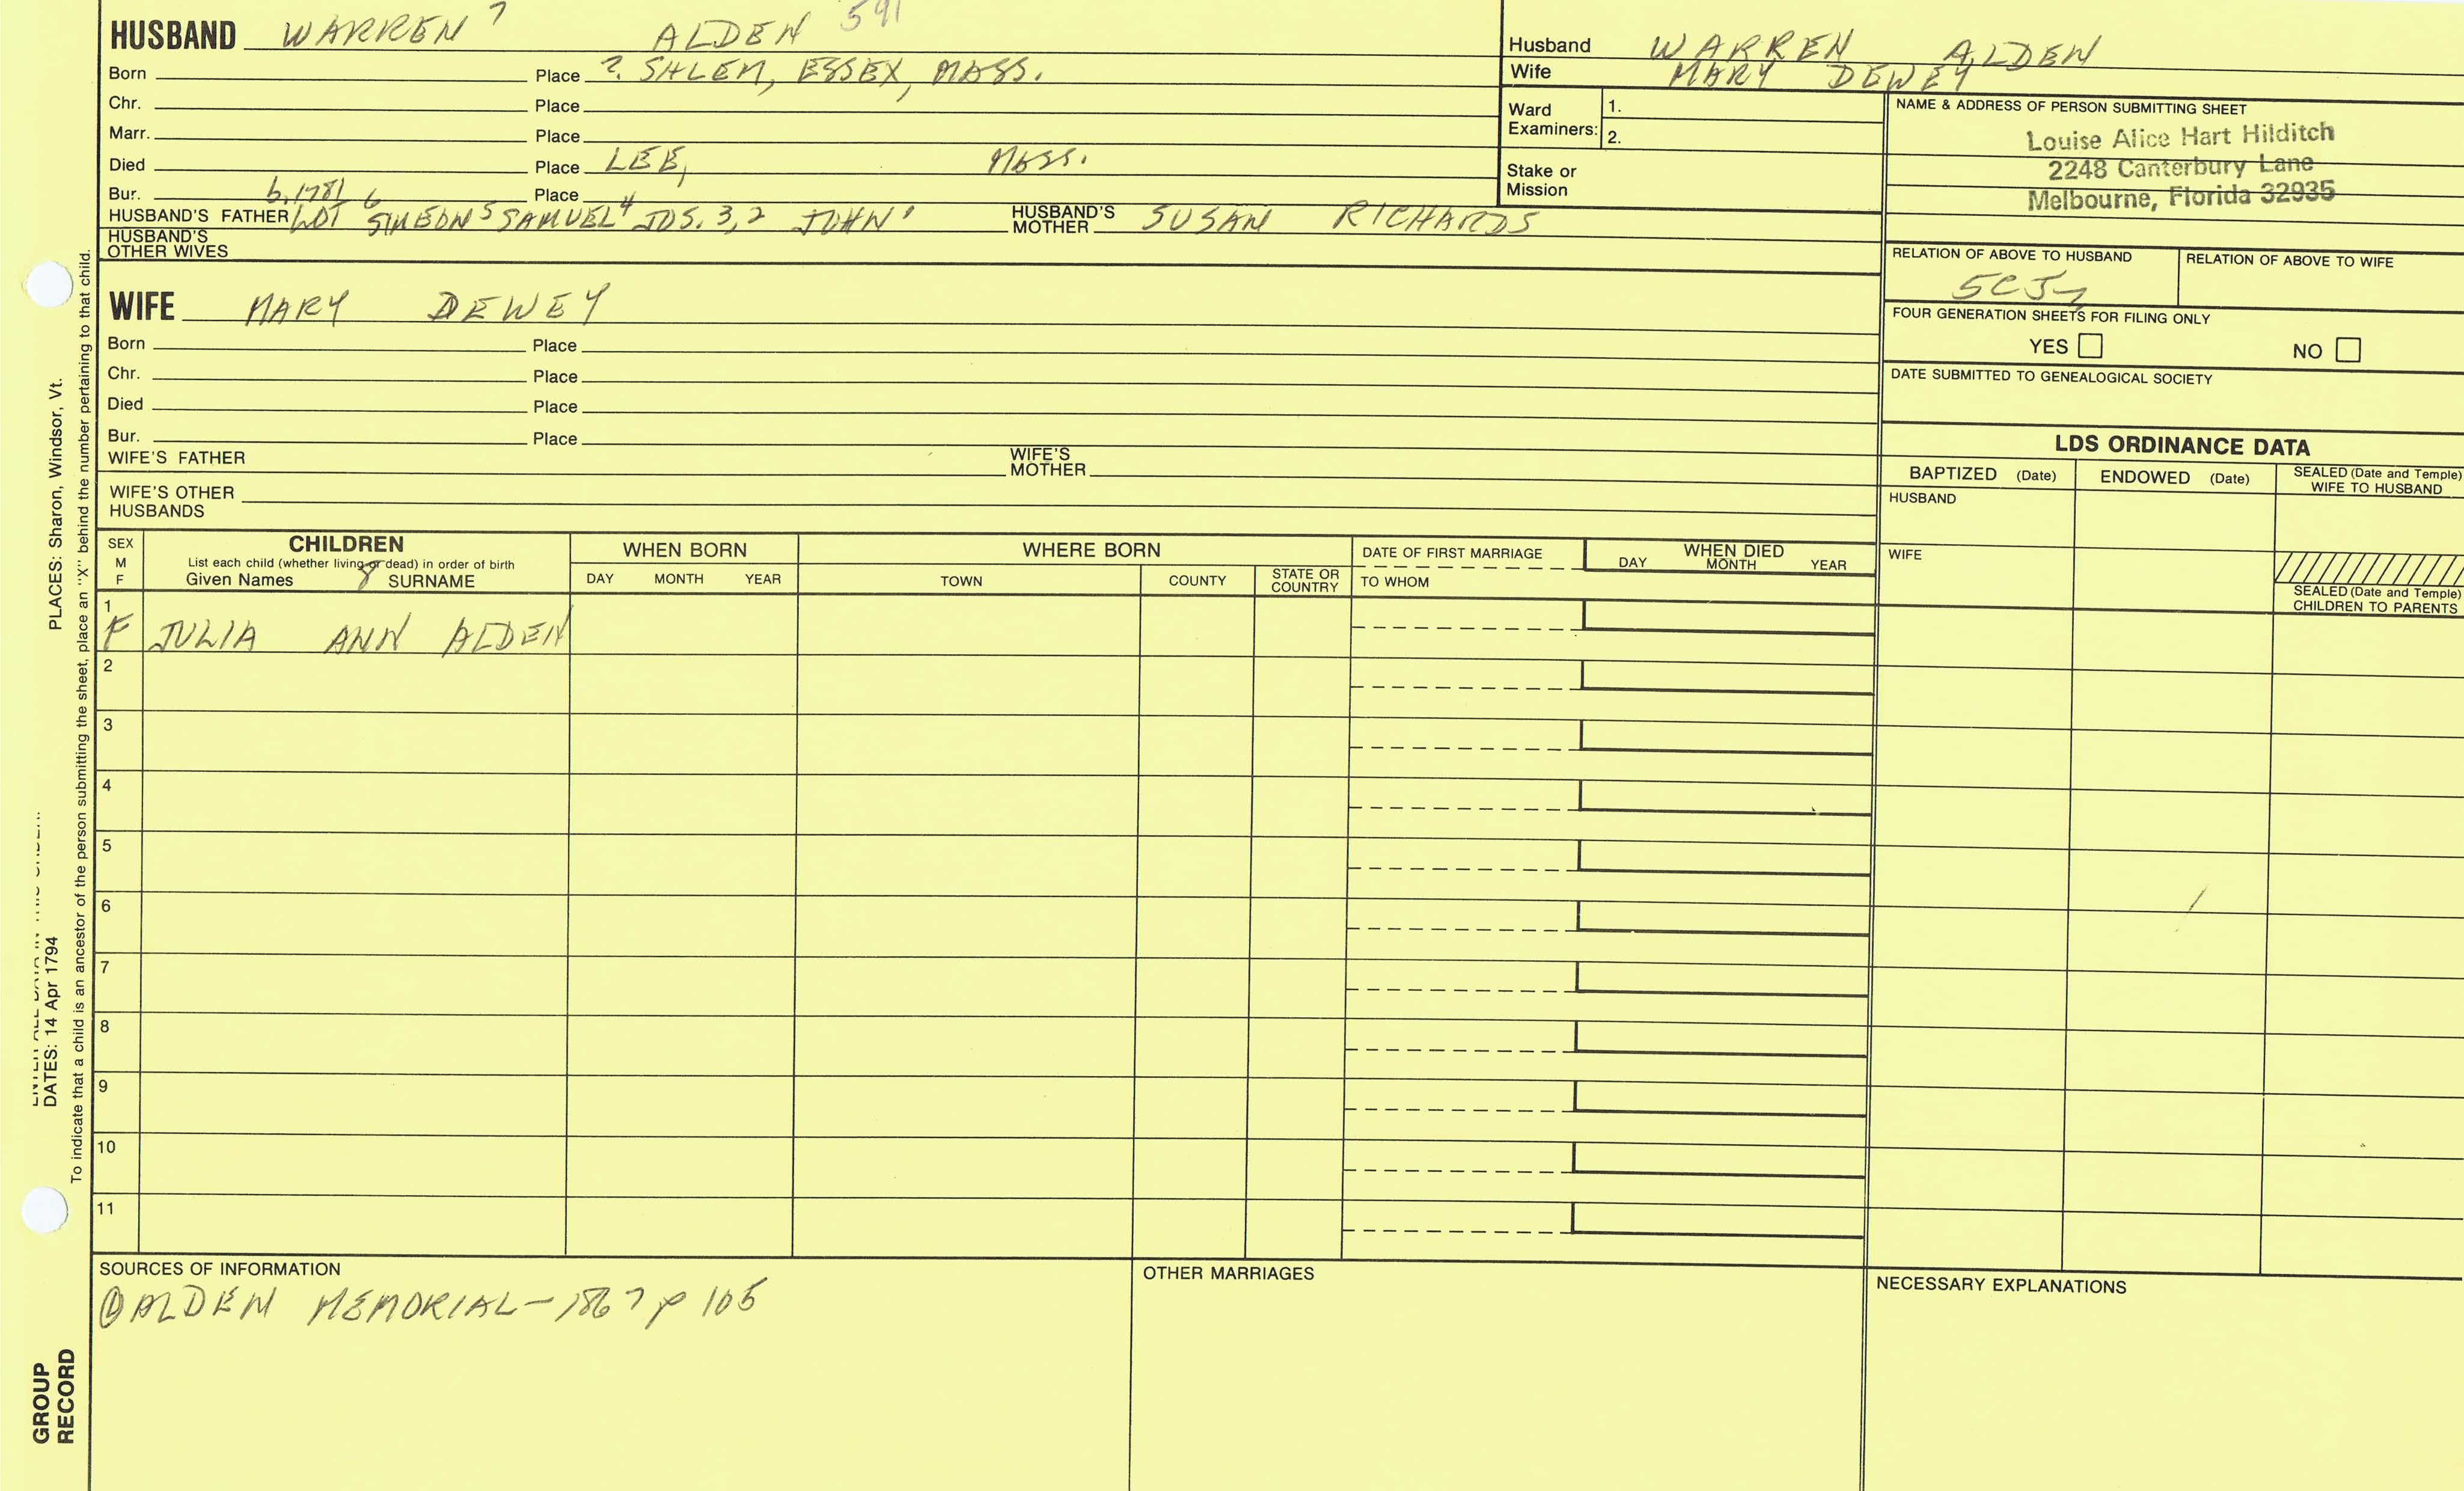 HUSBAND WARREN 7 ALDEN 591
Born Place ? SALEM, ESSEX, MASS.
Chr. Place
Marr. Place
Died Place LEE, MASS.
Bur. Place
b. 1781
HUSBAND'S FATHER LOT 6 SIMEON 5 SAMUEL 4 JOS. 3,2 JOHN 1 HUSBAND'S MOTHER SUSAN RICHARDS
HUSBAND'S OTHER WIVES
Husband WARREN ALDEN
Wife MARY DEWEY
Ward Examiners: 1.
2.
Stake or Mission
NAME & ADDRESS OF PERSON SUBMITTING SHEET
Louise Alice Hart Hilditch
2248 Canterbury Lane
Melbourne, Florida 32935
RELATION OF ABOVE TO HUSBAND RELATION OF ABOVE TO WIFE
FOUR GENERATION SHEETS FOR FILING ONLY
YES NO
DATE SUBMITTED TO GENEALOGICAL SOCIETY
WIFE MARY DEWEY
Born Place
Chr. Place
Died Place
Bur. Place
WIFE'S FATHER WIFE'S MOTHER
WIFE'S OTHER HUSBANDS
LDS ORDINANCE DATA
BAPTIZED (Date) ENDOWED (Date) SEALED (Date and Temple) WIFE TO HUSBAND
HUSBAND
WIFE
SEALED (Date and Temple) CHILDREN TO PARENTS
SEX M F
CHILDREN
List each child (whether living or dead) in order of birth
Given Names 8 SURNAME
WHEN BORN
DAY MONTH YEAR
WHERE BORN
TOWN COUNTY STATE OR COUNTRY
DATE OF FIRST MARRIAGE
TO WHOM
WHEN DIED
DAY MONTH YEAR
1
F JULIA ANN ALDEN
2
3
4
5
6
7
8
9
10
11
SOURCES OF INFORMATION
① ALDEN MEMORIAL - 1867 p 105
OTHER MARRIAGES
NECESSARY EXPLANATIONS
PLACES: Sharon, Windsor, Vt.
DATES: 14 Apr 1794
To indicate that a child is an ancestor of the person submitting the sheet, place an "X" behind the number pertaining to that child.
GROUP
RECORD